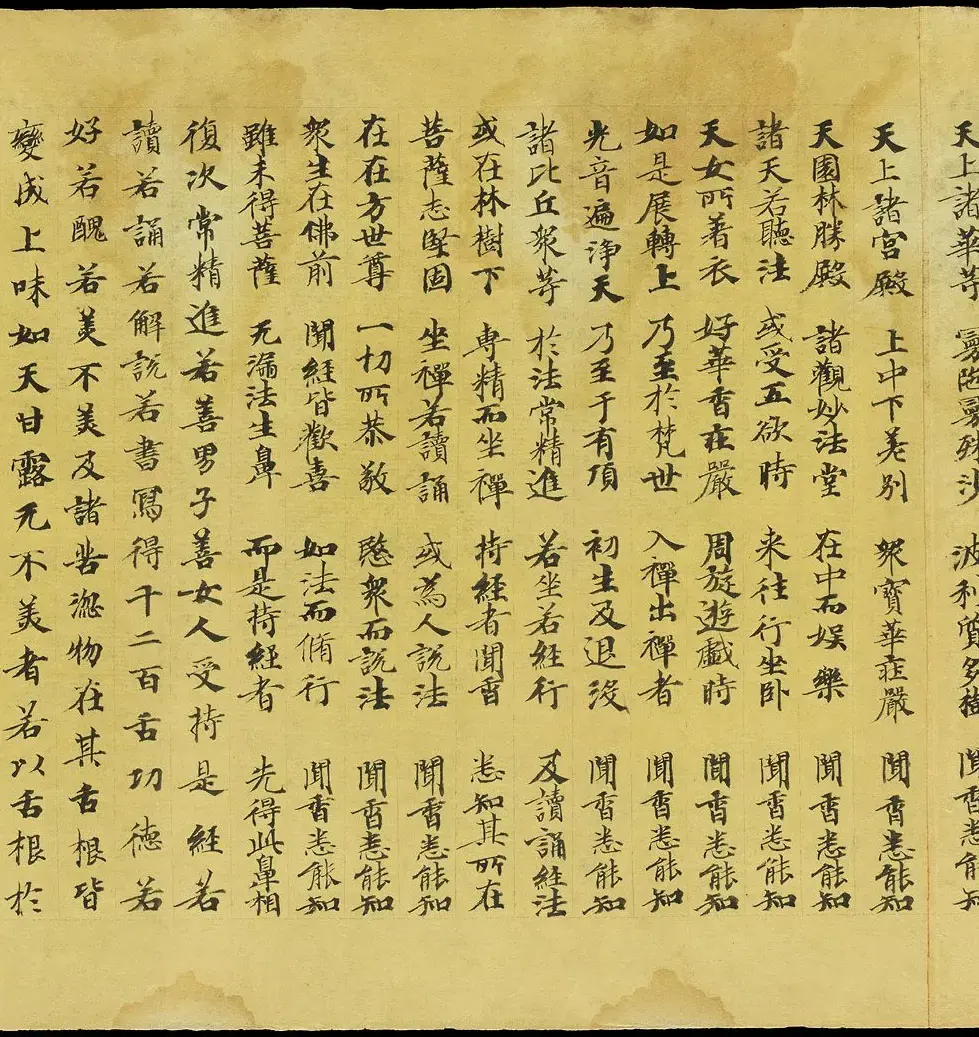 天上諸華等 曼陀曼殊沙 波利質多樹 聞香悉能知
天上諸宮殿 上中下差別 衆寶華莊嚴 聞香悉能知
天園林勝殿 諸觀妙法堂 在中而娛樂 聞香悉能知
諸天若聽法 或受五欲時 来往行坐卧 聞香悉能知
天女所著衣 好華香莊嚴 周旋遊戲時 聞香悉能知
如是展轉上 乃至於梵世 入禪出禪者 聞香悉能知
光音遍淨天 乃至于有頂 初生及退沒 聞香悉能知
諸比丘衆等 於法常精進 若坐若經行 及讀誦經法
或在林樹下 專精而坐禪 持經者聞香 悉知其所在
菩薩志堅固 坐禪若讀誦 或為人說法 聞香悉能知
在在方世尊 一切所恭敬 愍衆而說法 聞香悉能知
衆生在佛前 聞經皆歡喜 如法而脩行 聞香悉能知
雖未得菩薩 无漏法生鼻 而是持經者 先得此鼻相
復次常精進若善男子善女人受持是經若
讀若誦若解說若書寫得千二百舌功德若
好若醜若美不美及諸苦澁物在其舌根皆
變成上味如天甘露无不美者若以舌根於